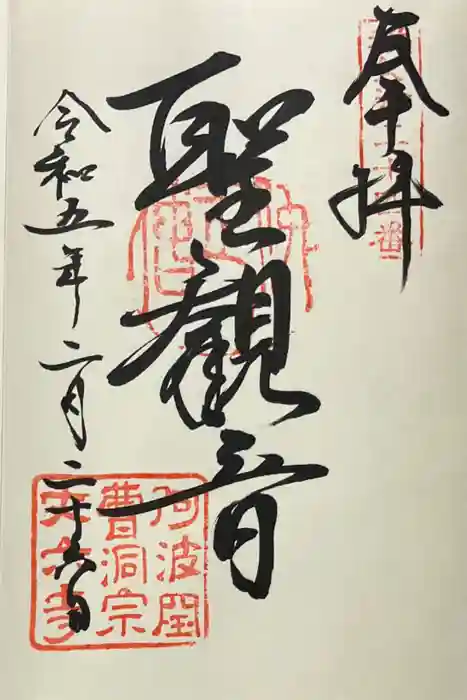 奉拝
聖観音
令和五年二月二十六日
阿波國
曹洞宗
丈六寺